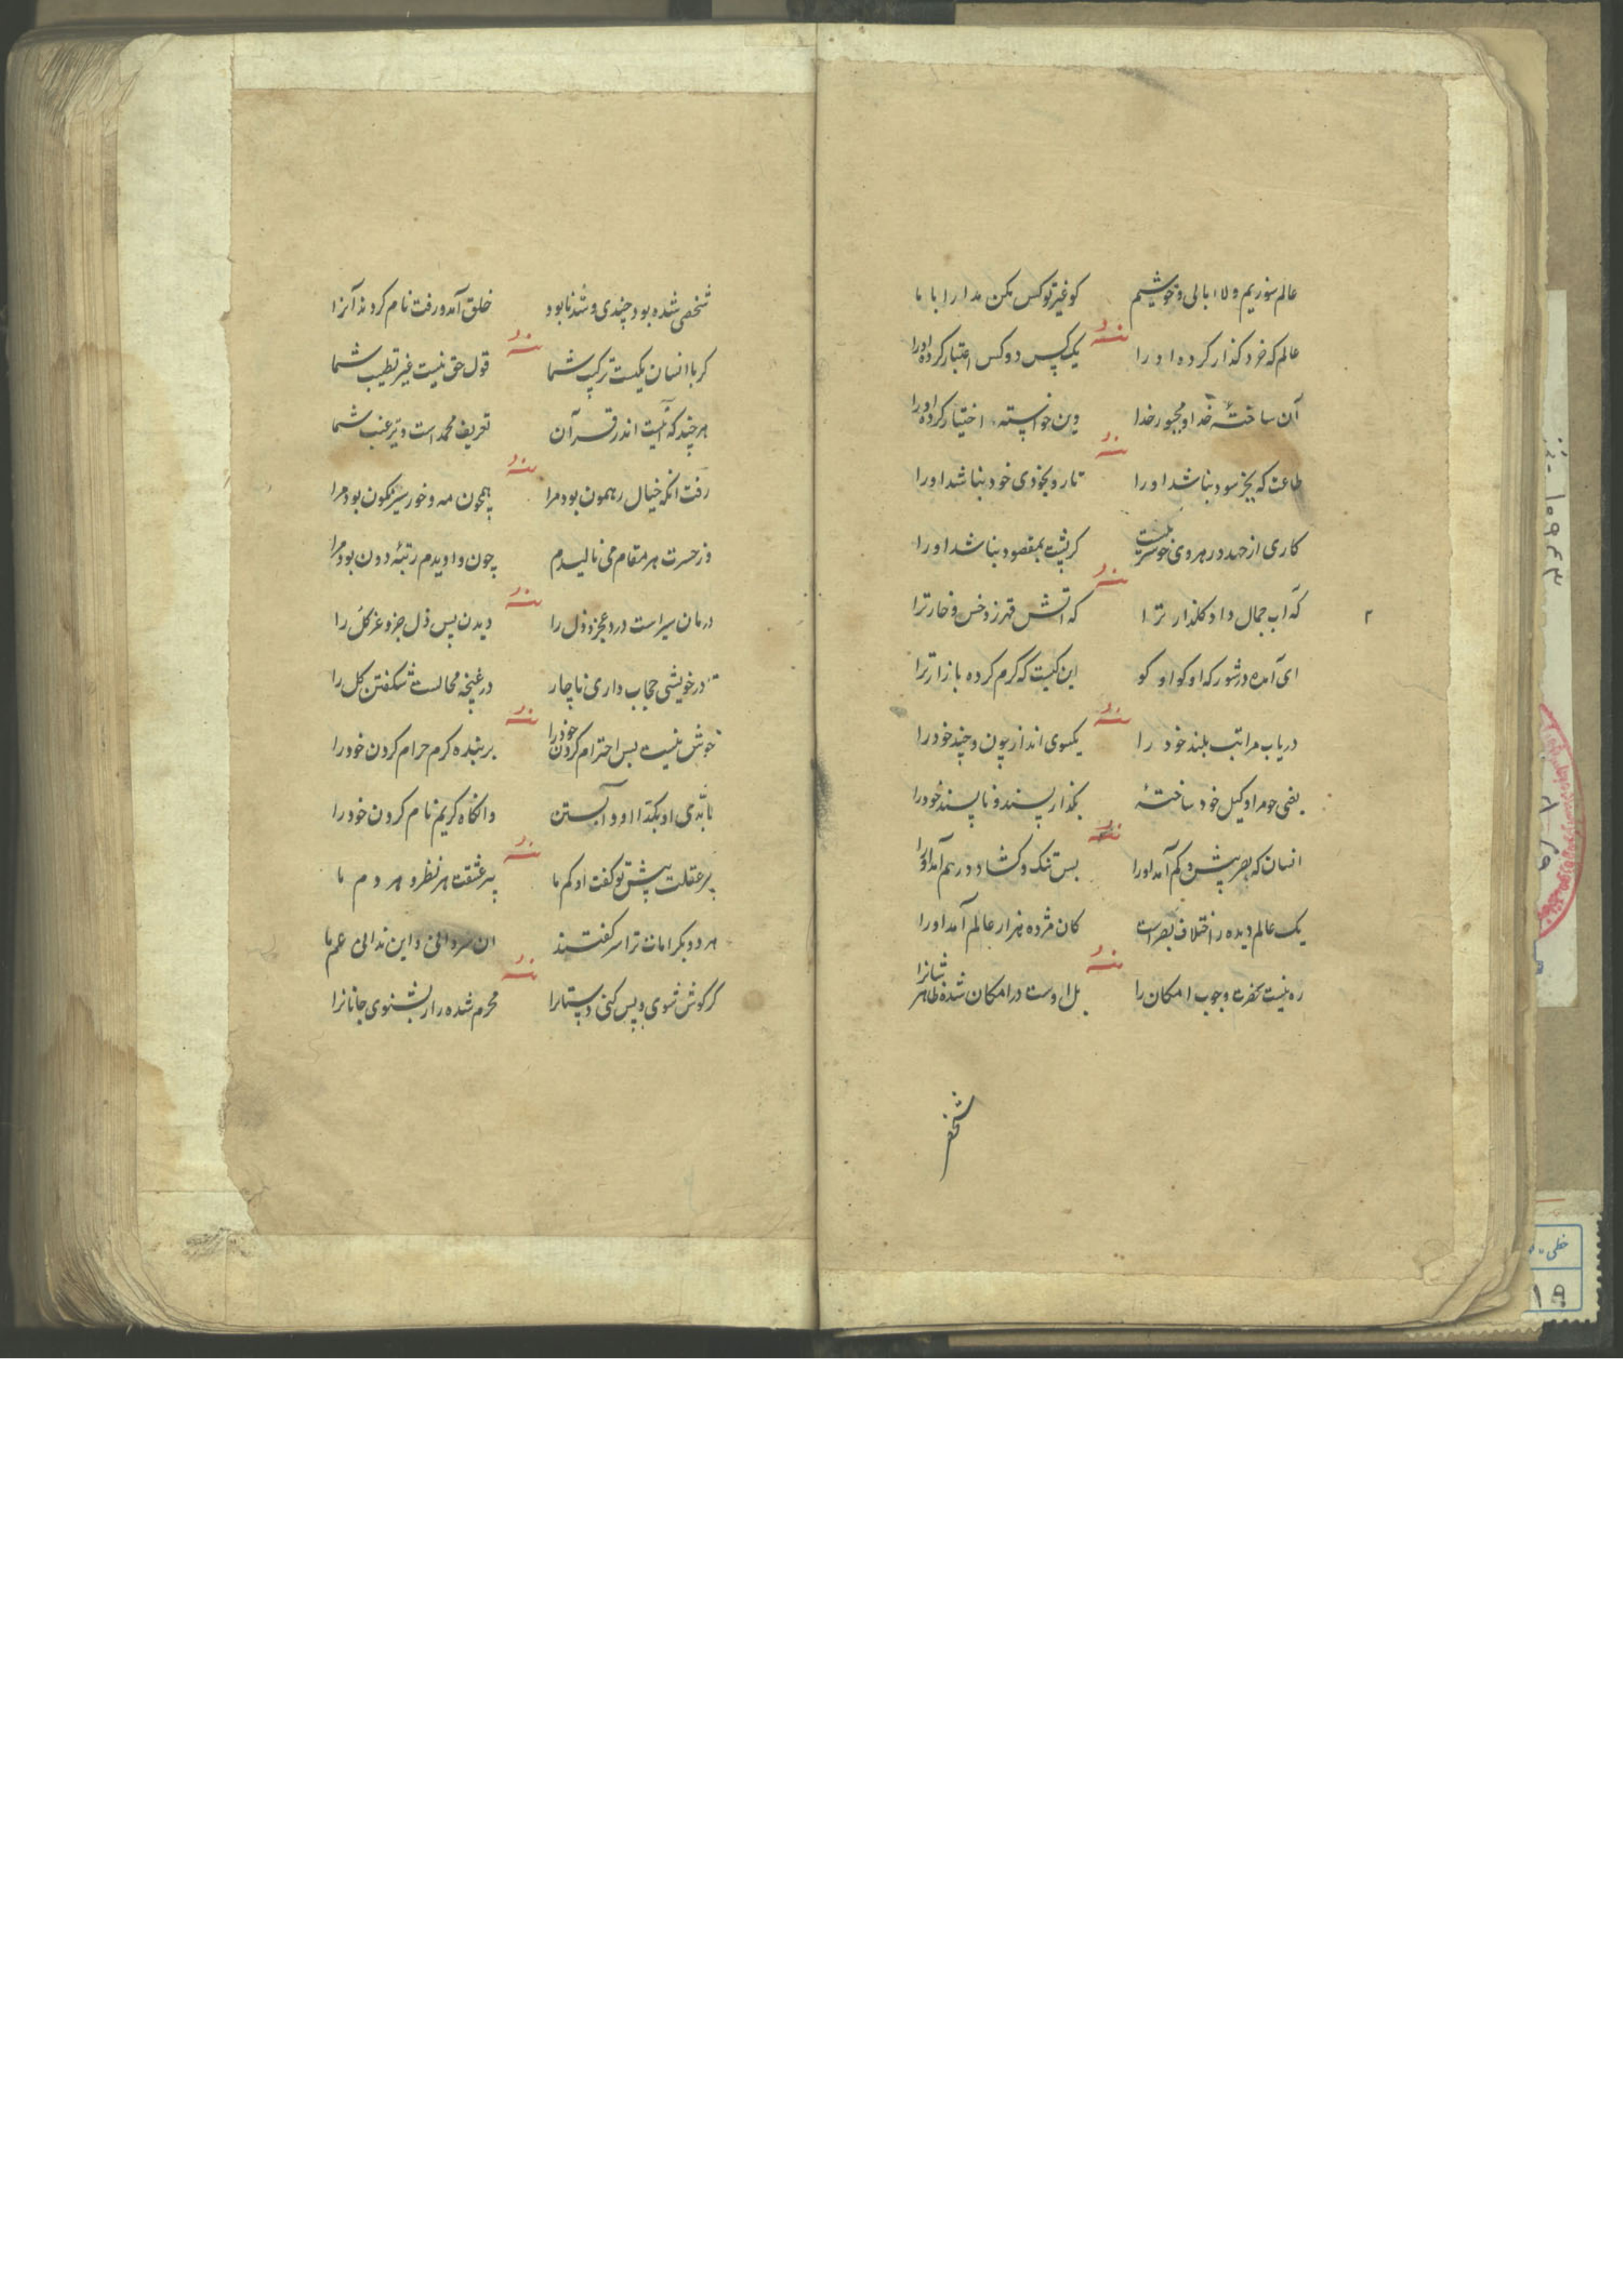 عالم سوزیم و لاابالی و خوشیم کو غیر تو کس مکن مدارا با ما
منه
عالم که خرد گذار کرده او را یک کس دو کس اعتبار کرده او را
آن ساختهٔ خدا و مجبور خدا وین خواسته اختیار کرده او را
منه
طاعت که بجز سود نباشد او را تا رو بخودی خود نباشد او را
کاری از جهد در هروی نیست کر پشت بمقصود نباشد او را
منه
که آب جمال داد گلذار ترا که آتش قهر زد خس و خار ترا
ای آمده در شور که او کو او کو این کیست که گرم کرده بازار ترا
منه
دریاب مراتب بلند خود را یکسوی انداز چون و چند خود را
یعنی چو مرا وکیل خود ساختهٔ بگذار پسند و ناپسند خود را
منه
انسان که بصر پیش و کم آمد او را بست تنک و گشاد درهم آمد او را
یک عالم دیده ز اختلاف بصراست کان مژده هزار عالم آمد او را
منه
ره نیست بحضرت وجوب امکان را بل اوست در امکان شده ظاهر شانرا
شخص
شخصی شده بود چندی و شد نابود خلق آمد و رفت نام کردند آنرا
منه
کر با انسان یکیست ترکیب شما قول حق نیست غیر تطییب شما
هر چند که نیست اندر قرآن تعریف محمد است و ترغیب شما
منه
رفت آنکه خیال رهمون بود مرا همچون مه و خور سیر نکون بود مرا
وز حسرت هر مقام می نالیدم چون وا دیدم رتبهٔ دون بود مرا
منه
درمان سیر است درد عجز و ذل را دیدن پس ذل جزو عز کل را
در خویشی حجاب داری ناچار در غنچه محالست شکفتن گل را
منه
خوش نیست بس احترام کردن خود را بر بنده کرم حرام کردن خود را
وانگاه کریم نام کردن خود را
منه
پیر عقلت پیش تو گفت او کم ما پیر عشقت هر نظر و هر دم ما
هر دو بکرامات ترا سر گفتند این ندانی عم ما
منه
کر گوش شوی و پس کنی دستانرا محرم شده راز بشنوی جانانرا